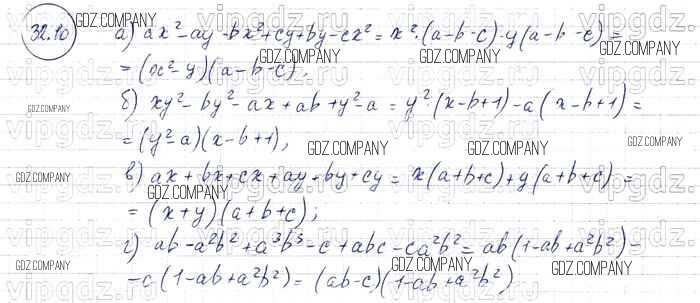 32.10
а) ax² - ay - bx² + cy + by - cx² = x²·(a-b-c) - y(a-b-c) =
= (x²-y)(a-b-c),
б) xy² - by² - ax + ab + y² - a = y²·(x-b+1) - a(x-b+1) =
= (y²-a)(x-b+1),
в) ax + bx + cx + ay + by + cy = x(a+b+c) + y(a+b+c) =
= (x+y)(a+b+c);
г) ab - a²b² + a³b³ - c + abc - ca²b² = ab(1-ab+a²b²) -
- c(1-ab+a²b²) = (ab-c)(1-ab+a²b²)
GDZ.COMPANY
vipgdz.